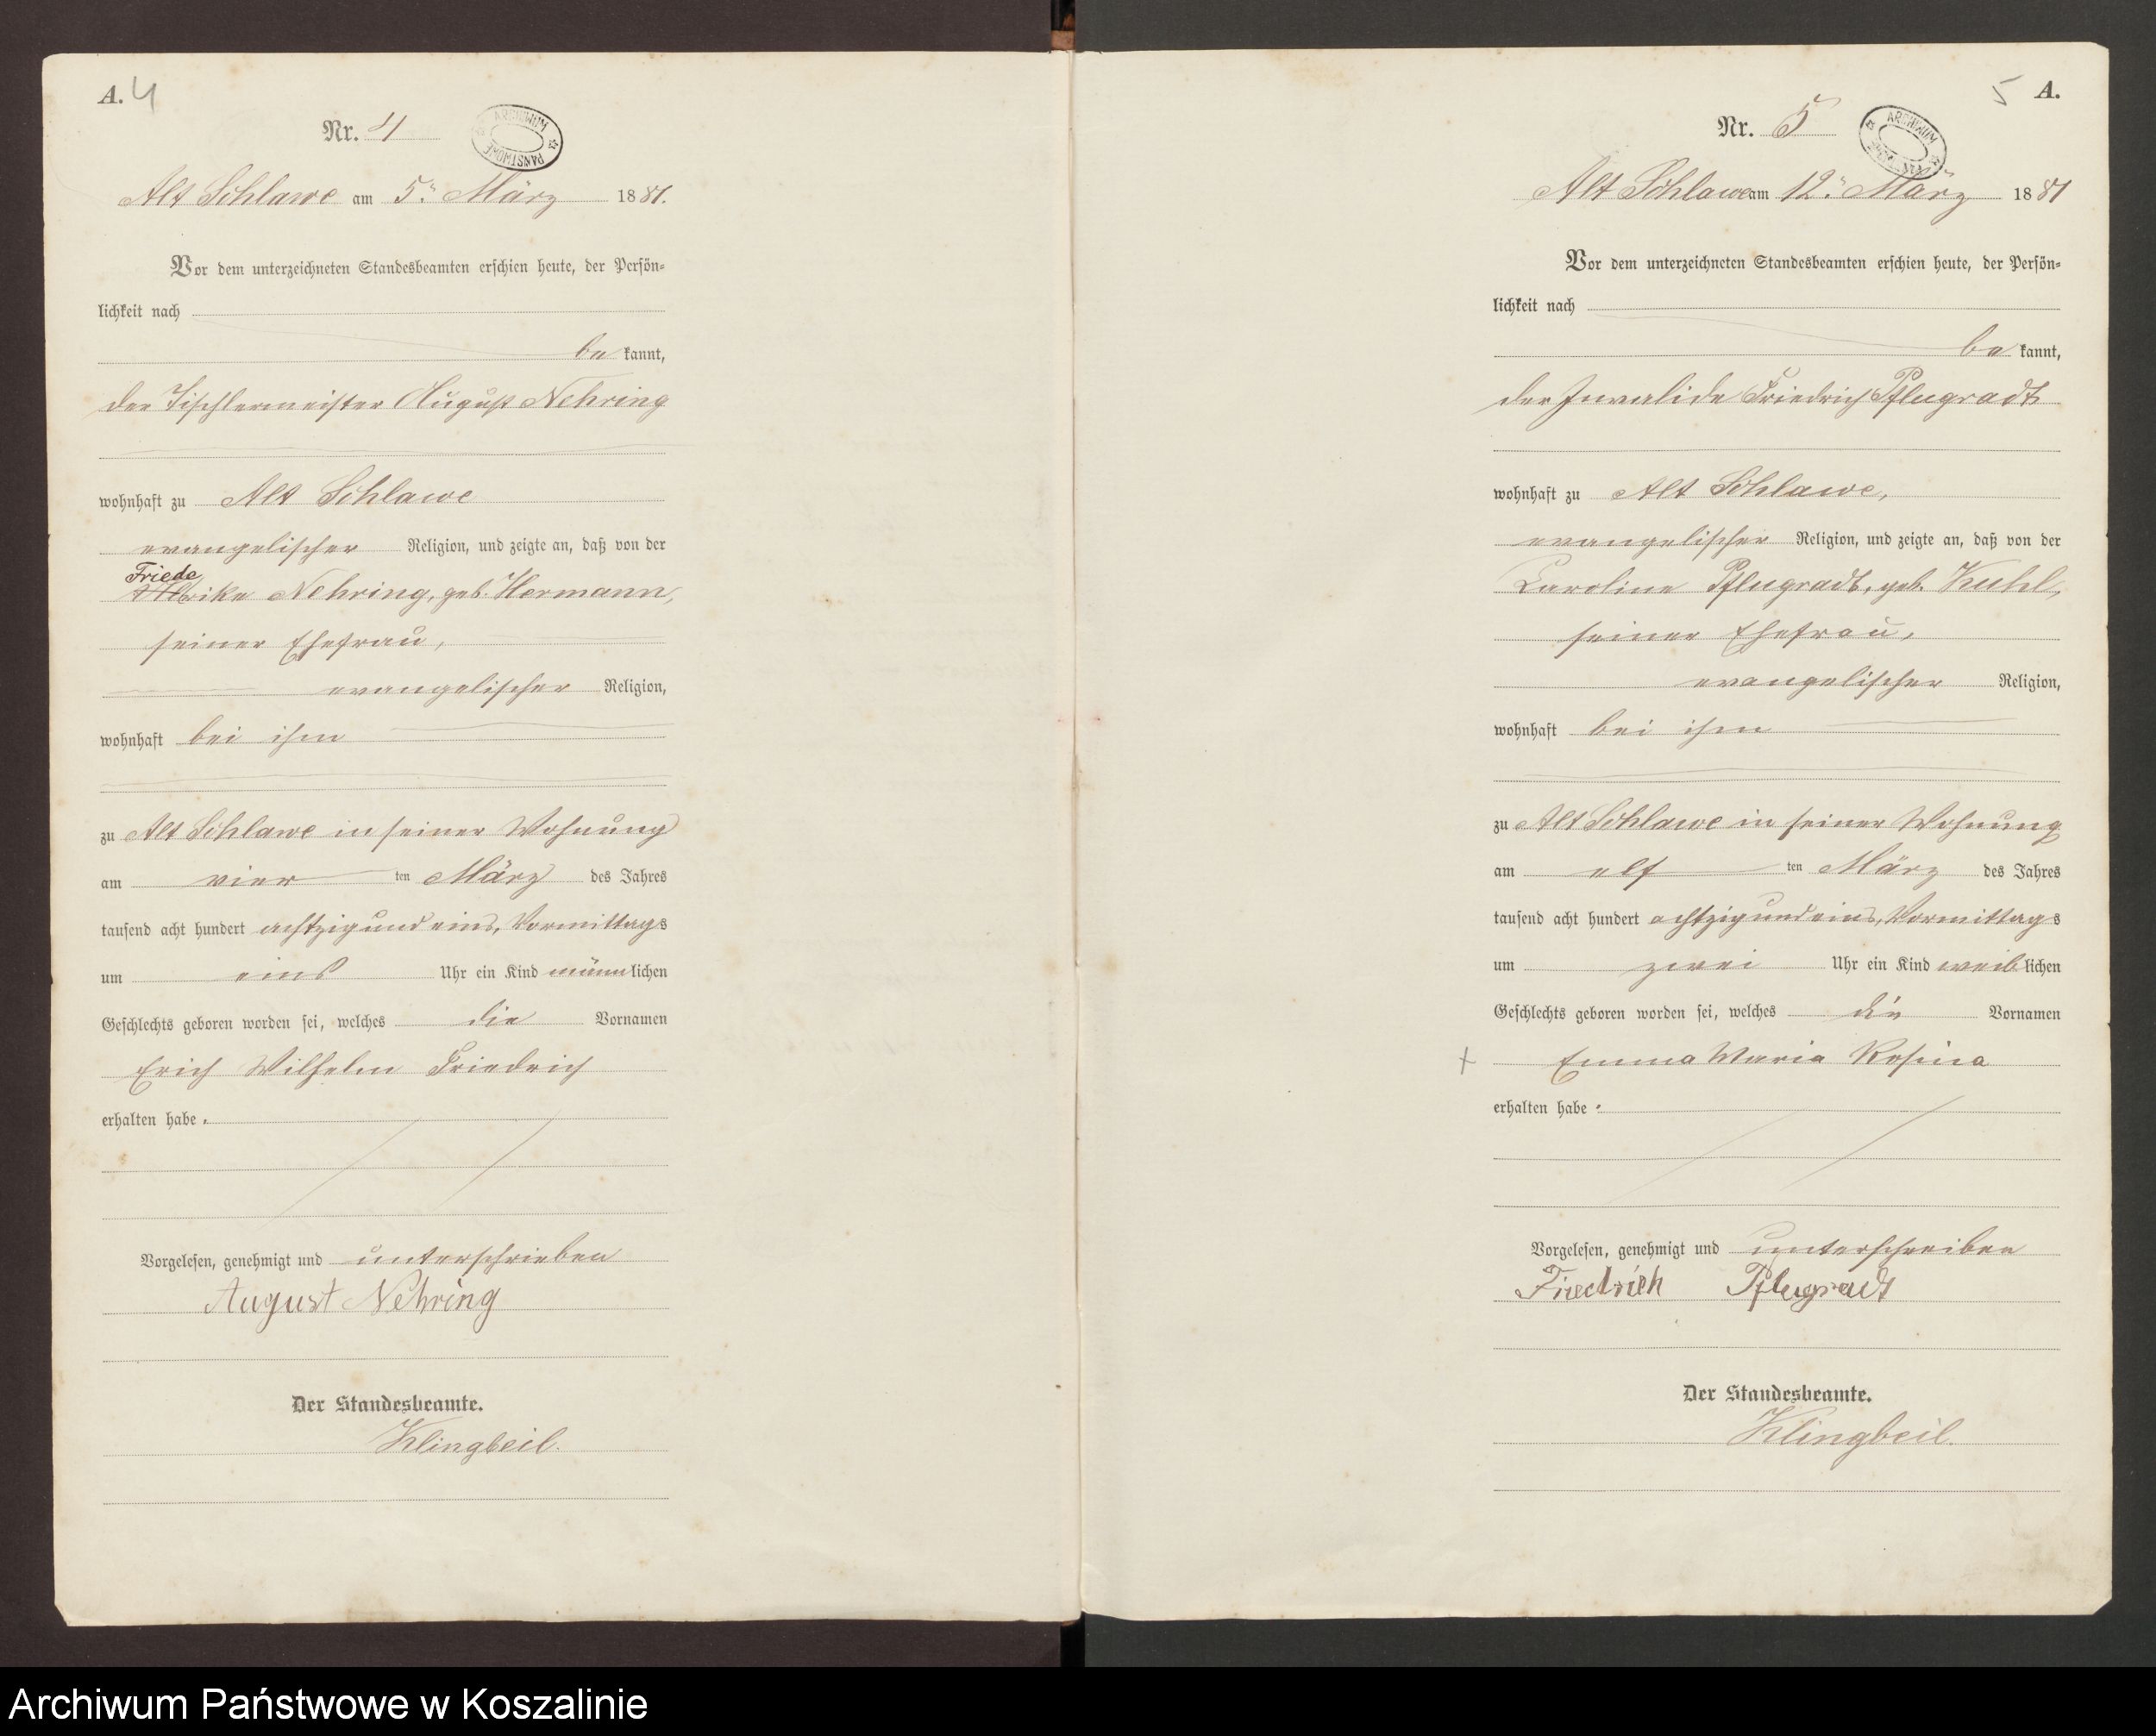 A. 4
Nr. 4
ARCHIWUM PAŃSTWOWE
Alt Schlawe am 5.ⁿ März 1881.
Vor dem unterzeichneten Standesbeamten erschien heute, der Persön-
lichkeit nach
be kannt,
der Tischlermeister August Nehring
wohnhaft zu Alt Schlawe
evangelischer Religion, und zeigte an, daß von der
Friede
Ulrike Nehring, geb. Hermann,
seiner Ehefrau,
evangelischer Religion,
wohnhaft bei ihm
zu Alt Schlawe in seiner Wohnung
am vier ten März des Jahres
tausend acht hundert achtzig und eins, Vormittags
um eins Uhr ein Kind männlichen
Geschlechts geboren worden sei, welches die Vornamen
Erich Wilhelm Friedrich
erhalten habe.
Vorgelesen, genehmigt und unterschrieben
August Nehring
Der Standesbeamte.
Klingbeil.
5 A.
Nr. 5
ARCHIWUM
Alt Schlawe am 12.ⁿ März 1881
Vor dem unterzeichneten Standesbeamten erschien heute, der Persön-
lichkeit nach
be kannt,
der Invalide Friedrich Pflugradt
wohnhaft zu Alt Schlawe,
evangelischer Religion, und zeigte an, daß von der
Caroline Pflugradt, geb. Kuhl,
seiner Ehefrau,
evangelischer Religion,
wohnhaft bei ihm
zu Alt Schlawe in seiner Wohnung
am elf ten März des Jahres
tausend acht hundert achtzig und eins, Vormittags
um zwei Uhr ein Kind weiblichen
Geschlechts geboren worden sei, welches die Vornamen
Emma Maria Rosina
erhalten habe.
Vorgelesen, genehmigt und unterschreiben
Friedrich Pflugradt
Der Standesbeamte.
Klingbeil.
Archiwum Państwowe w Koszalinie